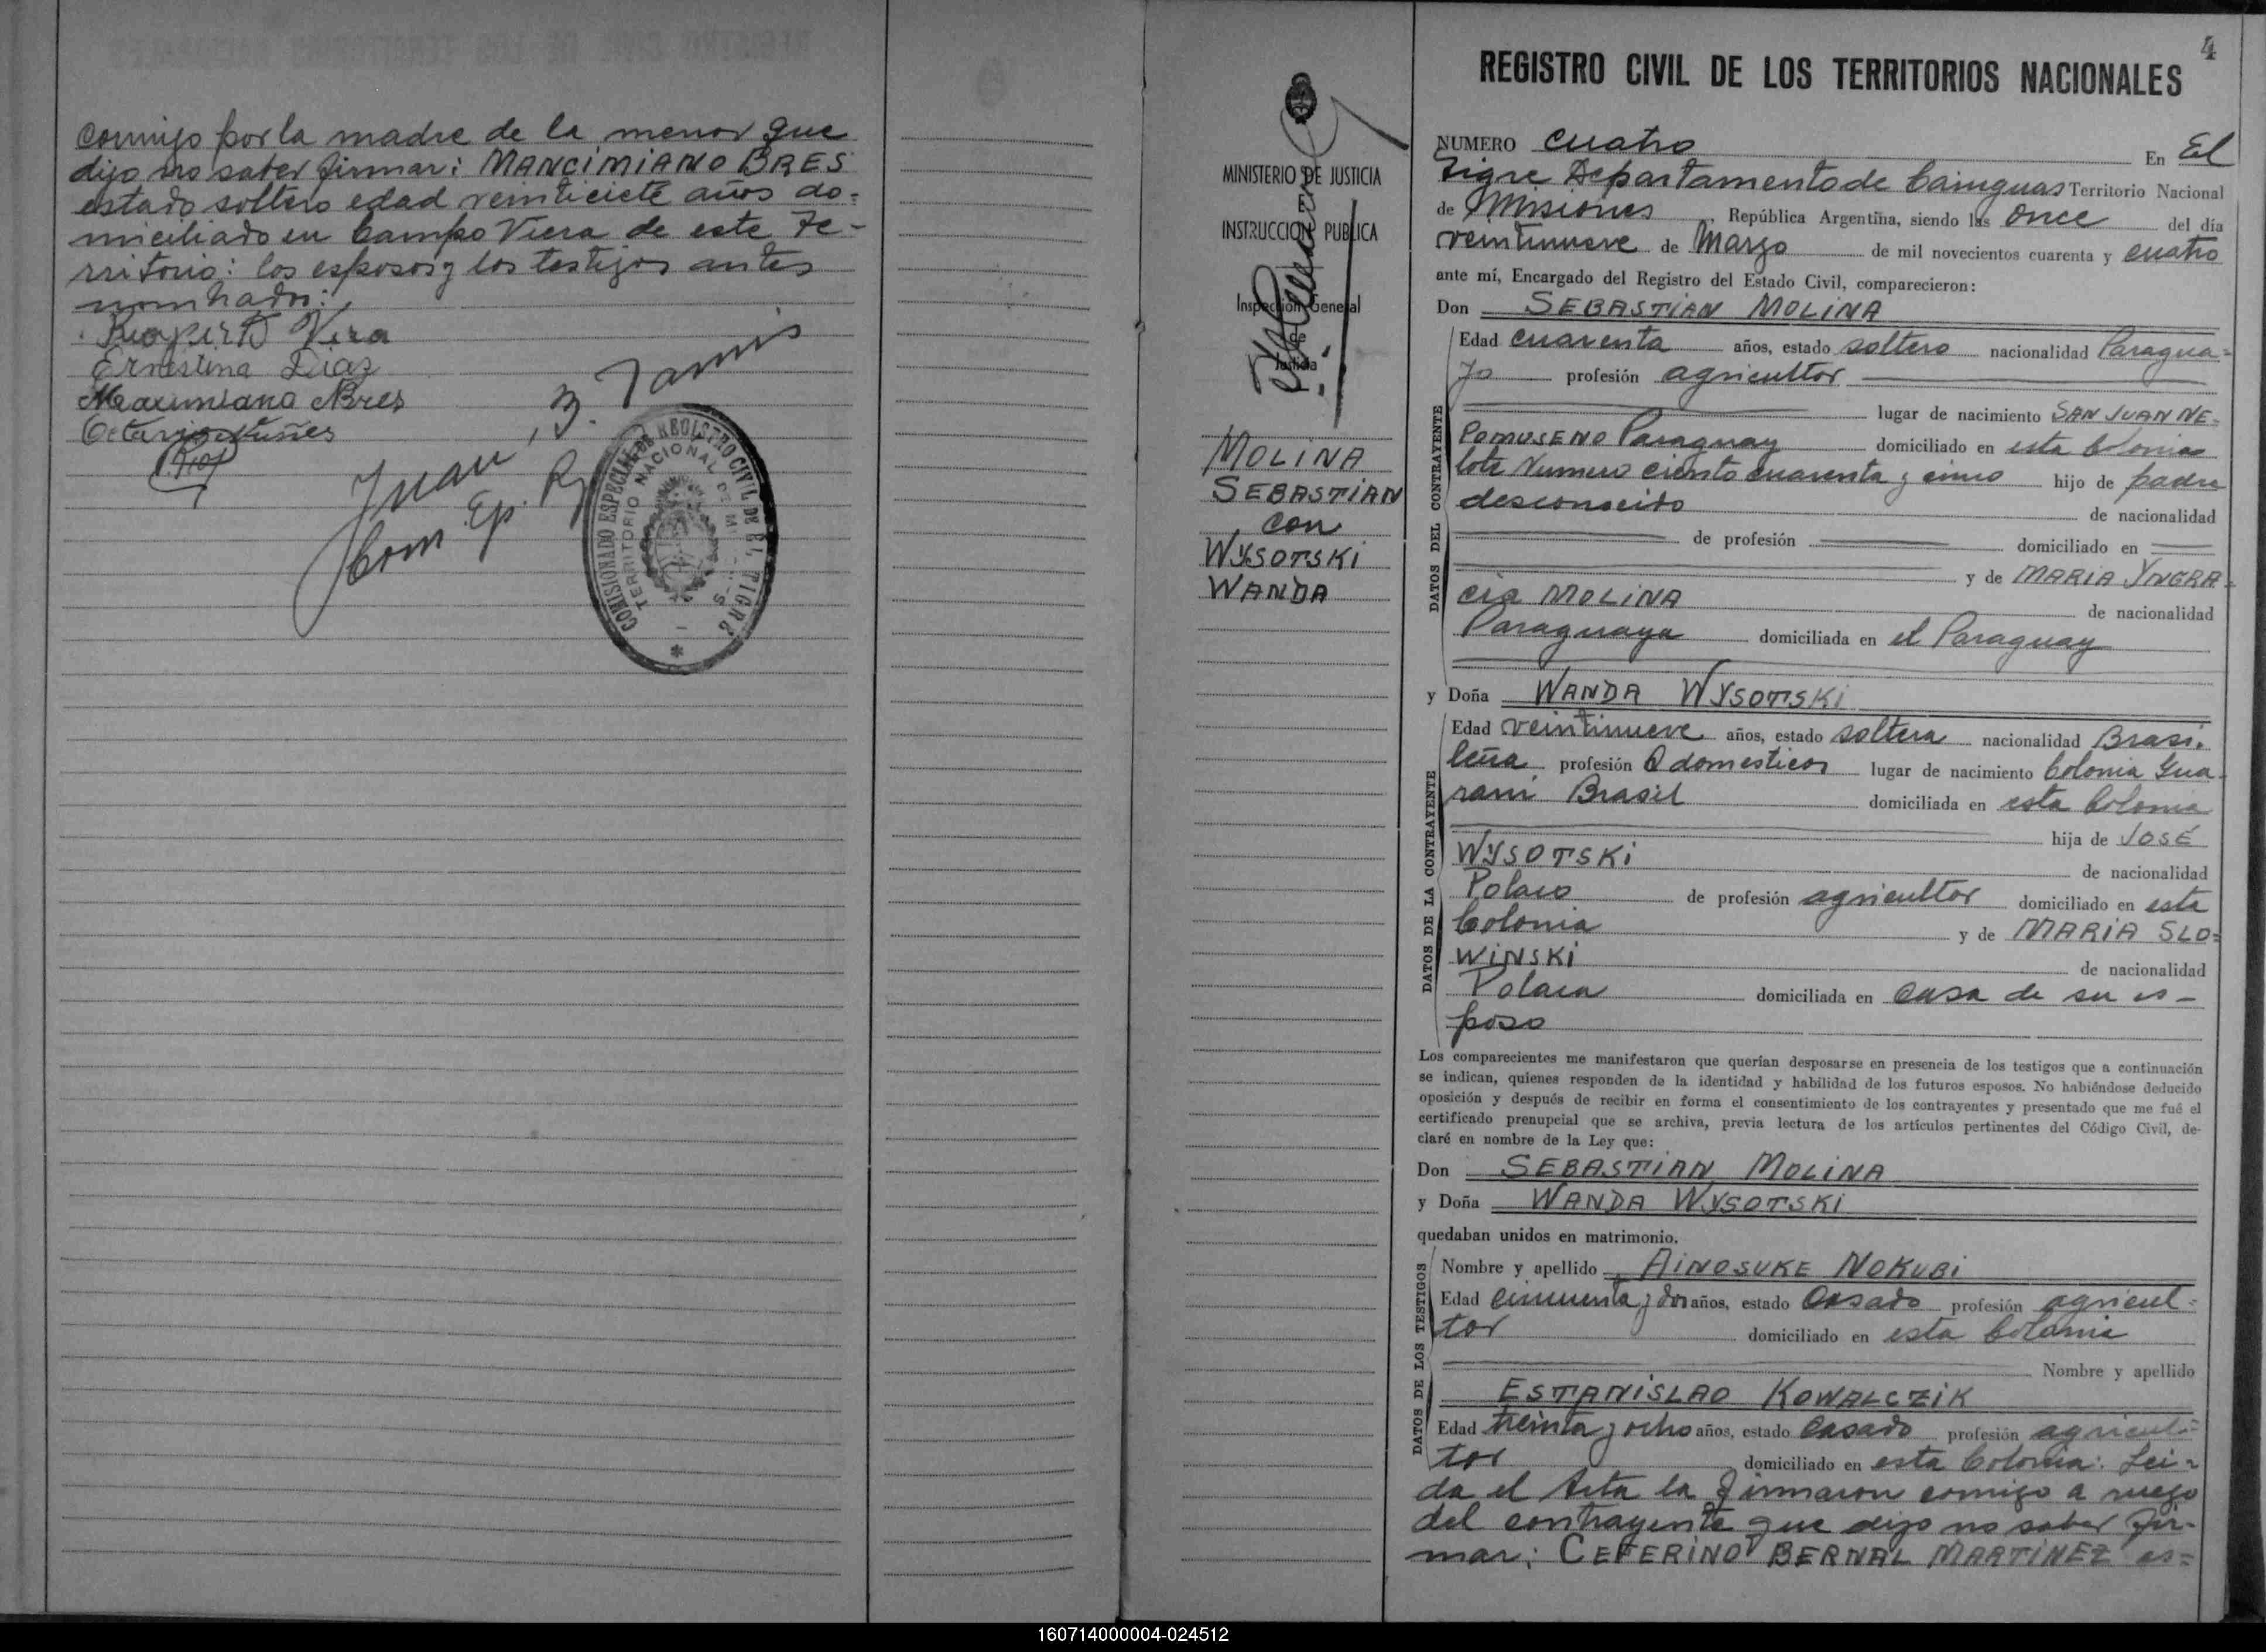 comigo por la madre de la menor que
dijo no saber firmar: MANCIMIANO BRES
estado soltero edad veinticiete años do=
miciliado en Campo Viera de este Te-
rritorio: los esposos y los testigos antes
nombrados:
Ruperto Vera
Ernestina Diaz
Maximiano Bres
Octavio Nuñes
Juan B.
Com. Esp.
COMISIONADO ESPECIAL DE REGISTRO CIVIL DE EL TIGRE
TERRITORIO NACIONAL DE MISIONES
MINISTERIO DE JUSTICIA
INSTRUCCION PUBLICA
Inspección General
de
Justicia
MOLINA
SEBASTIAN
con
WYSOTSKI
WANDA
4
REGISTRO CIVIL DE LOS TERRITORIOS NACIONALES
NUMERO cuatro En El
Tigre Departamento de Cainguas Territorio Nacional
de Misiones, República Argentina, siendo las once del día
veintinueve de Marzo de mil novecientos cuarenta y cuatro
ante mí, Encargado del Registro del Estado Civil, comparecieron:
Don SEBASTIAN MOLINA
DATOS DEL CONTRAYENTE
Edad cuarenta años, estado soltero nacionalidad Paragua=
yo profesión agricultor
lugar de nacimiento SAN JUAN NE=
POMUSENO Paraguay domiciliado en esta Colonia
lote Numero ciento cuarenta y cinco hijo de padre
desconocido de nacionalidad
de profesión domiciliado en
y de MARIA YNGRA=
cia MOLINA de nacionalidad
Paraguaya domiciliada en el Paraguay
y Doña WANDA WYSOTSKI
DATOS DE LA CONTRAYENTE
Edad veintinueve años, estado soltera nacionalidad Brasi-
leña profesión Q domesticos lugar de nacimiento Colonia Gua-
rani Brasil domiciliada en esta Colonia
hija de JOSÉ
WYSOTSKI de nacionalidad
Polaco de profesión agricultor domiciliado en esta
Colonia y de MARIA SLO=
WINSKI de nacionalidad
Polaca domiciliada en casa de su es-
poso
Los comparecientes me manifestaron que querían desposarse en presencia de los testigos que a continuación
se indican, quienes responden de la identidad y habilidad de los futuros esposos. No habiéndose deducido
oposición y después de recibir en forma el consentimiento de los contrayentes y presentado que me fué el
certificado prenupcial que se archiva, previa lectura de los artículos pertinentes del Código Civil, de-
claré en nombre de la Ley que:
Don SEBASTIAN MOLINA
y Doña WANDA WYSOTSKI
quedaban unidos en matrimonio.
DATOS DE LOS TESTIGOS
Nombre y apellido AINOSUKE NOKUBI
Edad cincuenta y dos años, estado Casado profesión agricul=
tor domiciliado en esta Colonia
Nombre y apellido
ESTANISLAO KOWALCZIK
Edad treinta y ocho años, estado Casado profesión agricul=
tor domiciliado en esta Colonia: Lei=
da el Acta la firmaron comigo a ruego
del contrayente que dijo no saber fir-
mar: CEFERINO BERNAL MARTINEZ es=
160714000004-024512